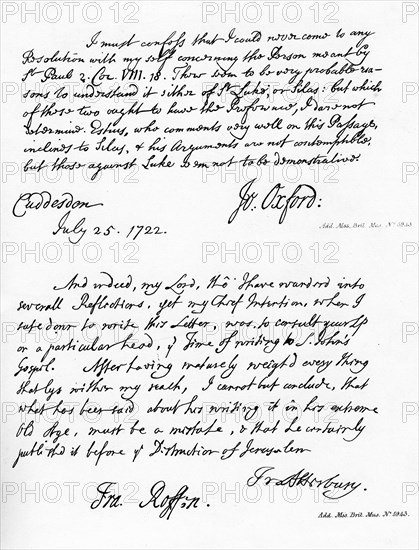 I must confess that I could never come to any
Resolution with my self concerning the Person meant by
St. Paul 2. Cor. VIII. 18. There seem to be very probable rea-
sons to understand it either of St. Luke, or Silas: but which
of these two ought to have the Preference, I dare not
determine. Estius, who comments very well on this Passage,
inclines to Silas, & his Arguments are not contemptible,
but those against Luke seem not to be demonstrative.
Cuddesdon
July 25. 1722.
Jo. Oxford:
Add. Mss. Brit. Mus. No. 5943
And indeed, my Lord, tho' I have wander'd into
severall Reflections, yet my Chief Intention, when I
sate down to write this Letter, was, to consult yourself
on a particular head, ye Time of writing to S. John's
Gospel. After having maturely weigh'd every thing
that lys within my reach, I cannot but conclude, that
what has been said about his writing it in his extreme
Old Age, must be a mistake, & that he certainly
publish'd it before ye Destruction of Jerusalem
Fr Atterbury.
Fra. Roffen.
Add. Mss Brit. Mus. No. 5943.